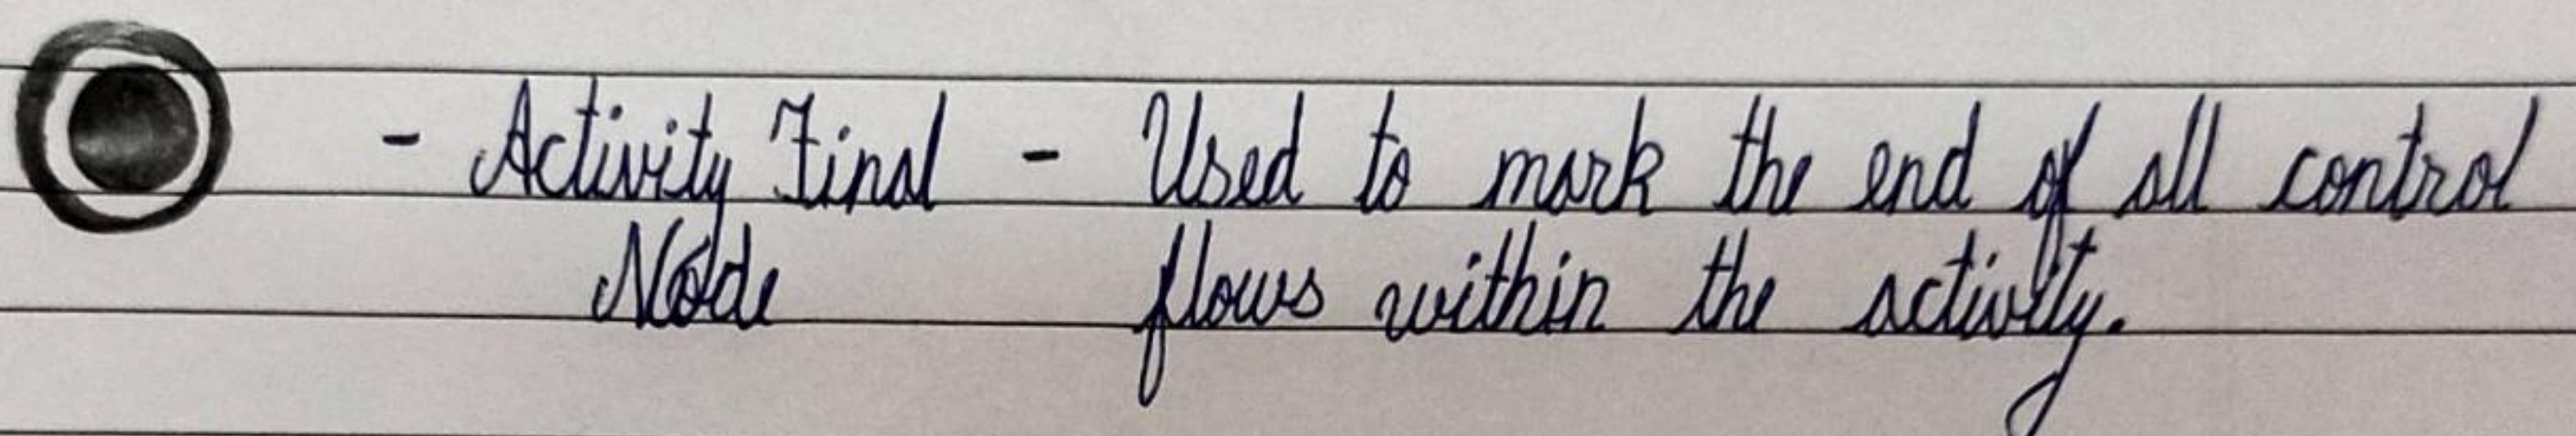 - Activity Final - Used to mark the end of all control
Node flows within the activity.